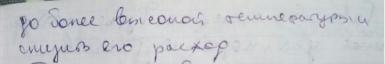 до более высокой температуры и
снизить его расход